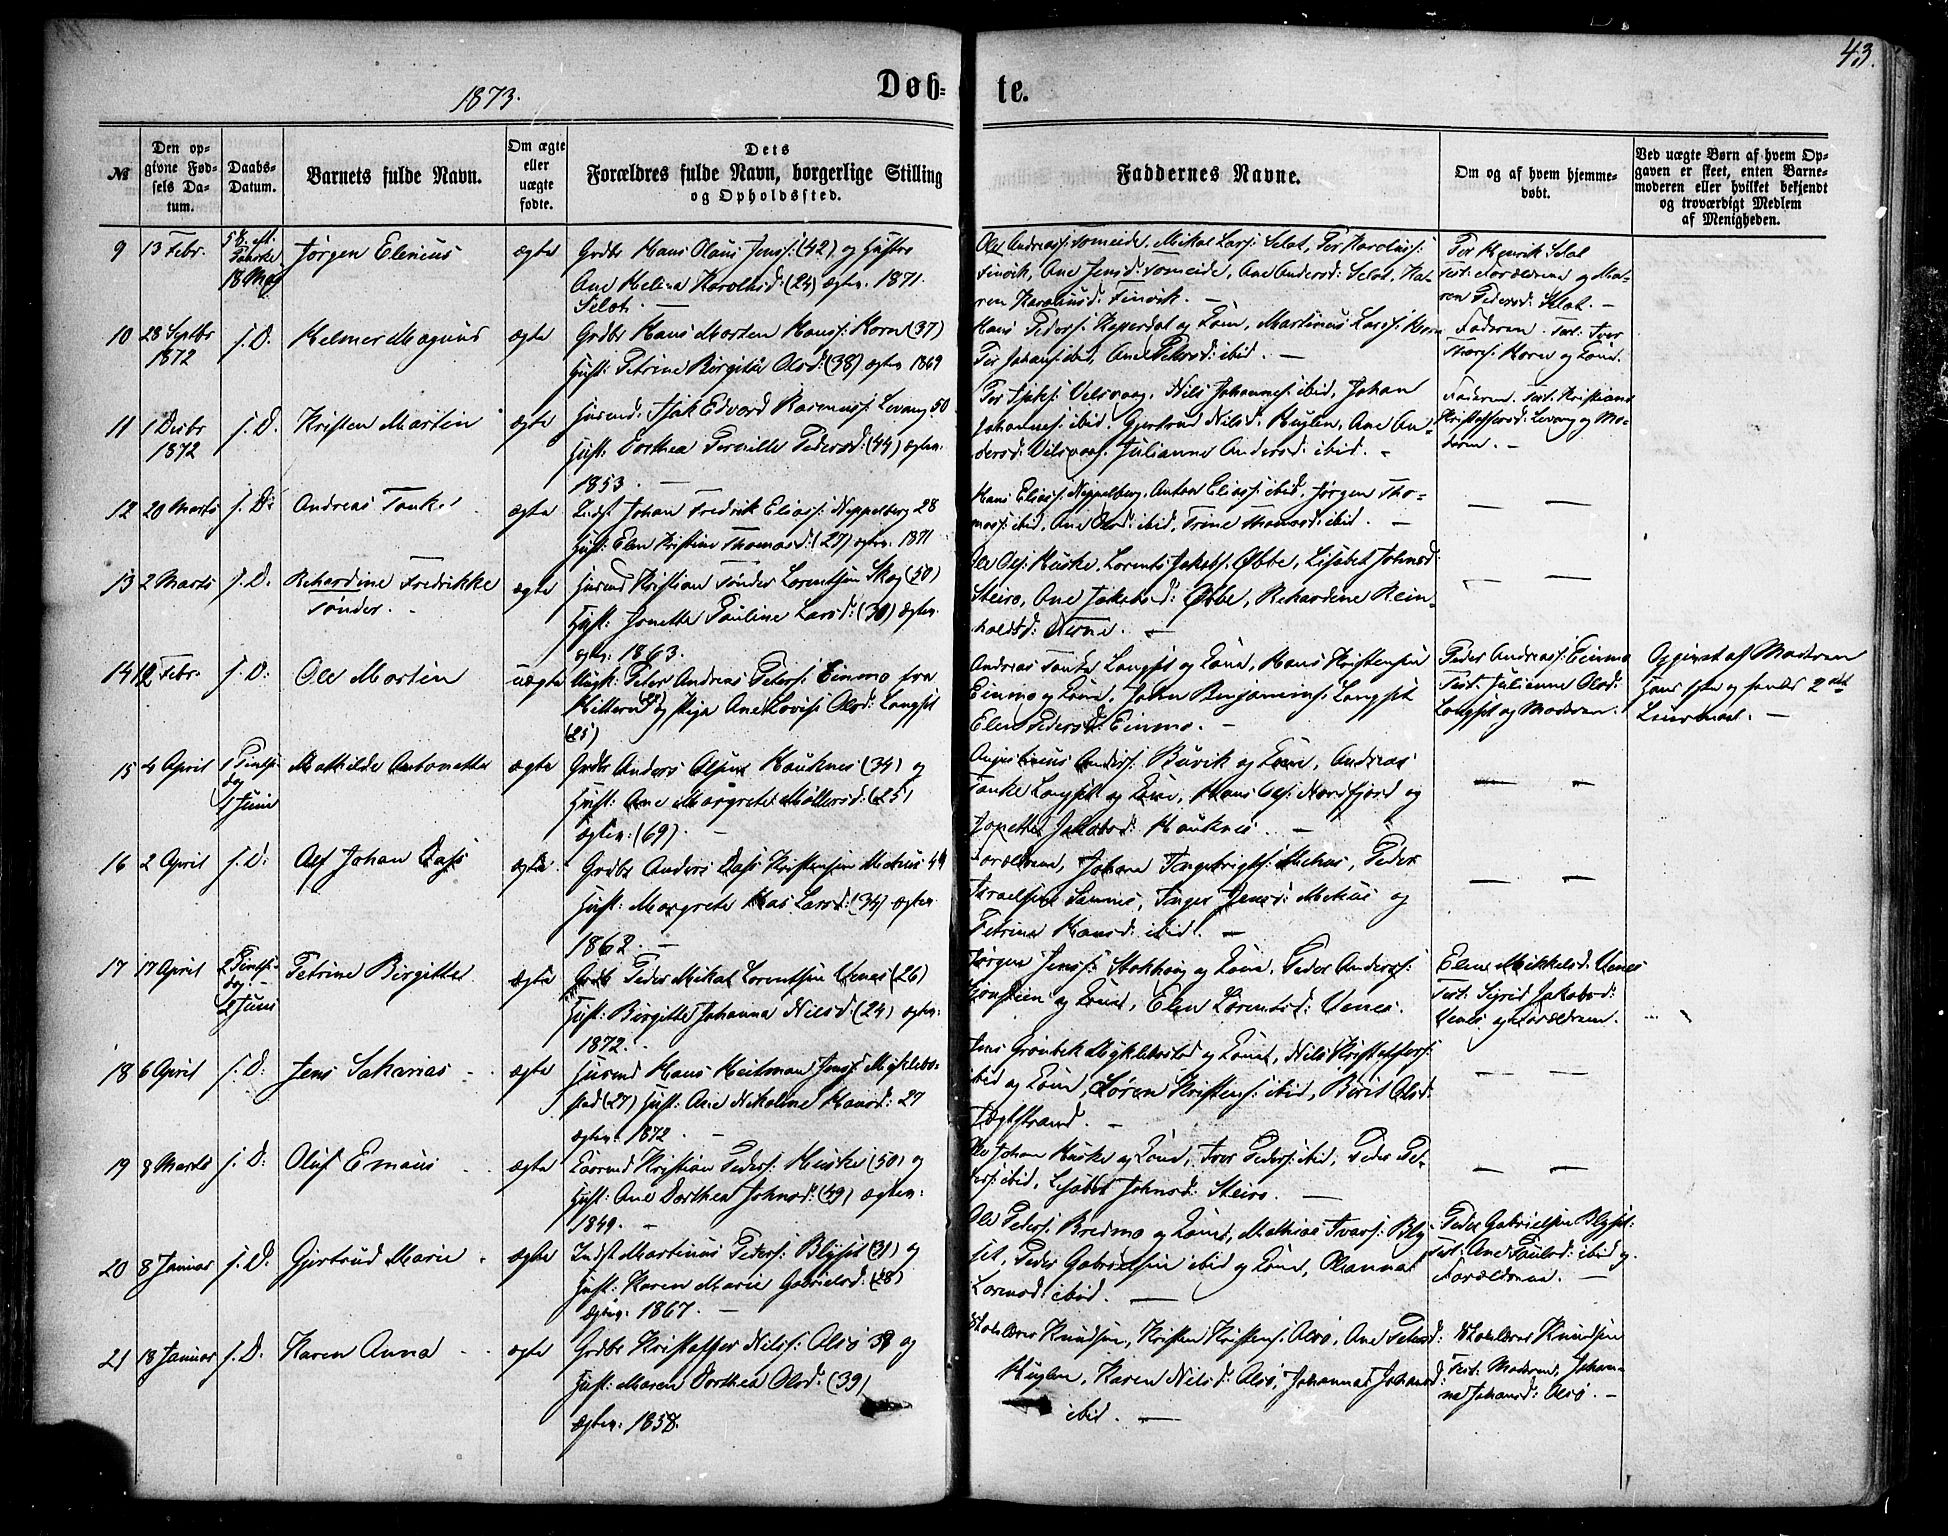 43.
1873.
Døb-
te.
№
Den opgivne Fødsels Datum.
Daabs-Datum.
Barnets fulde Navn.
Om ægte eller uægte fødte.
Dets Forældres fulde Navn, borgerlige Stilling og Opholdssted.
Faddernes Navne.
Om og af hvem hjemmedøbt.
Ved uægte Børn af hvem Opgaven er skeet, enten Barnemoderen eller hvilket bekjendt og troværdigt Medlem af Menigheden.
9 13 Febr. 5 S. eft. Paaske 18 Maj Jørgen Elenius ægte Grdbr Hans Olaus Jenss: (42) og Hustru
Ane Helena Karolusd: (24) ægtev. 1871.
Selot. —
Ole Andreass: Tomeide, Mikal Larss: Selot, Per Karoluss:
Finvik, Ane Jensd: Tomeide, Ane Andersd: Selot, Ka-
ren Karolusd: Finvik. —
Per Henrik Selot
Test: Forældrene og Ma-
ren Pedersd: Selot. —
10 28 Septbr 1872 s. D. Helmer Magnus ægte Grdbr Hans Morten Hanss: Horn (37)
Hust: Petrine Birgitte Olsd: (38) ægtev. 1869
Hans Peders: og Kone, Martinus Larss: Horn
Per Johans: ibid, Ane Petersd: ibid. —
Faderen. Test. Iver
Horn og Kone.
11 1 Decbr 1872 s. D. Kristen Martin ægte Husmd: Isak Edvard Rasmuss: Levang 50
Hust: Dorthea Pernille Pedersd: (44) ægtev.
1853. —
Per Isaks: Velsvaag, Nils Johanness: ibid, Johan
Johanness: ibid. Gjertrud Nilsd: Huglen, Ane An-
dersd: Velsvaag, Julianne Andersd: ibid. —
Faderen. Test. Kristiane
Kristoffersd: Levang og Mo-
deren. —
12 20 Marts s. D: Andreas Tanke ægte Indst Johan Fredrik Eliass: Neppelberg 28
Hust: Elen Kristine Thomasd: (27) ægtev. 1871
Hans Eliass: Neppelberg, Anton Eliass: ibid, Jørgen Tho-
mass: ibid, Ane Olsd: ibid, Trine Thomasd: ibid. —
— —
13 2 Marts s. D. Rehardine Fredrikke
Tønder. ægte Husmd Kristian Tønder Lorentsen Skog (50)
Hust: Jonetta Pauline Larsd: (30) ægtev.
1863.
Ole Ols: Huske, Lorents Jakobs: Øbbe, Lisabet Johnsd:
Steiro, Ane Jakobsd: Øbbe, Rehardine Rein-
holdtsd: Nerne. —
— —
14 12 Febr. s. D: Ole Martin uægte Ungk: Peter Andreas Peters: Einmo fra
Hitteren (25) og Pige Ane Lovise Olsd: Langset
(25)
Andreas Tanke Langset og Kone, Hans Kristensen
Einmo og Kone, John Benjamins: Langset
Elen Pedersd: Einmo. —
Peder Andreass: Einmo
Test. Julianne Olsd:
Langset og Moderen.
Opgivet af Moderen
Hans 1ste og hendes 2det
Leiermaal. —
15 4 April 1 Pintse-
dag
1 Juni Mathilde Antonette ægte Grdbr Anders Olsen Hauknes (34) og
Hust: Ane Margrete Møllersd: (25)
ægtev: (69). —
Anders: Buvik og Kone, Andreas
Tanke Langset og Kone, Hans Ols: Nordfjord og
Jonette Jakobsd: Hauknes. —
— —
16 2 April s. D: Alf Johan Dass ægte Grdbr Anders Dass Kristensen Mehus 44
Hust: Margrete Has Larsd: (34) ægtev.
1862. —
Forældrene, Johan Ingebrigts: Mehus, Peder
Israelsen Samnes, Inger Jensd: Mehus og
Petrina Hansd: ibid. —
— —
17 17 April 2 Pintse-
dag. –
2 Juni Petrine Birgitte ægte Grdbr Peder Mikal Lorentsen Venes (26)
Hust: Birgitte Johanna Nilsd: (24) ægtev.
1872. –
Jørgen Jenss: Stokhøg og Kone, Peder Anderss:
og Kone, Elen Lorentsd: Venes.
Elen Mikkelsd: Venes
Test: Sigrid Jakobsd:
Venes og Forældrene.
18 6 April s. D: Jens Sakarias ægte Husmd Hans Heitman Jenss: Myklebo-
stad (27) Hust: Ane Nikoline Hansd: 27
ægtev. 1872. —
Jens Grønbek Myklebostad og Kone, Nils Kristoffers:
ibid og Kone, Søren Kristens: ibid, Berit Olsd:
— —
19 8 Marts s. D: Oluf Emaus ægte Kristian Peders: Huske (50) og
Hust: Ane Dorthea Johnsd: (49) ægtev:
1849. —
Ole Johan Huske og Kone, Iver Peders: ibid, Peder Pe-
ders: ibid, Lisabet Johnsd: Steiro. —
— —
20 8 Januar s. D. Gjertrud Marie ægte Indst Martinus Peders: Blyset (31) og
Hust: Karen Marie Gabrielsd: (28)
ægtev. 1867. —
Ole Peders: Bredmo og Kone, Mathias Ivars: Bly-
set, Peder Gabrielsen ibid og Kone, Olanna
Larensd: ibid. —
Peder Gabrielsen Blyset.
Test: Ane Paulsd: ibid og
Forældrene. —
21 18 Januar s. D. Karen Anna ægte Grdbr Kristoffer Nilss: Alsø 38 og
Hust: Maren Dorthea Olsd: (39)
ægtev. 1858.
Knudsen, Kristen Kristens: Alsø, Ane Petersd:
Huglen, Karen Nilsd: Alsø, Johanna Johansd:
ibid. —
Knudsen
Test. Moderen, Johan-
na Johansd: Alsø. —